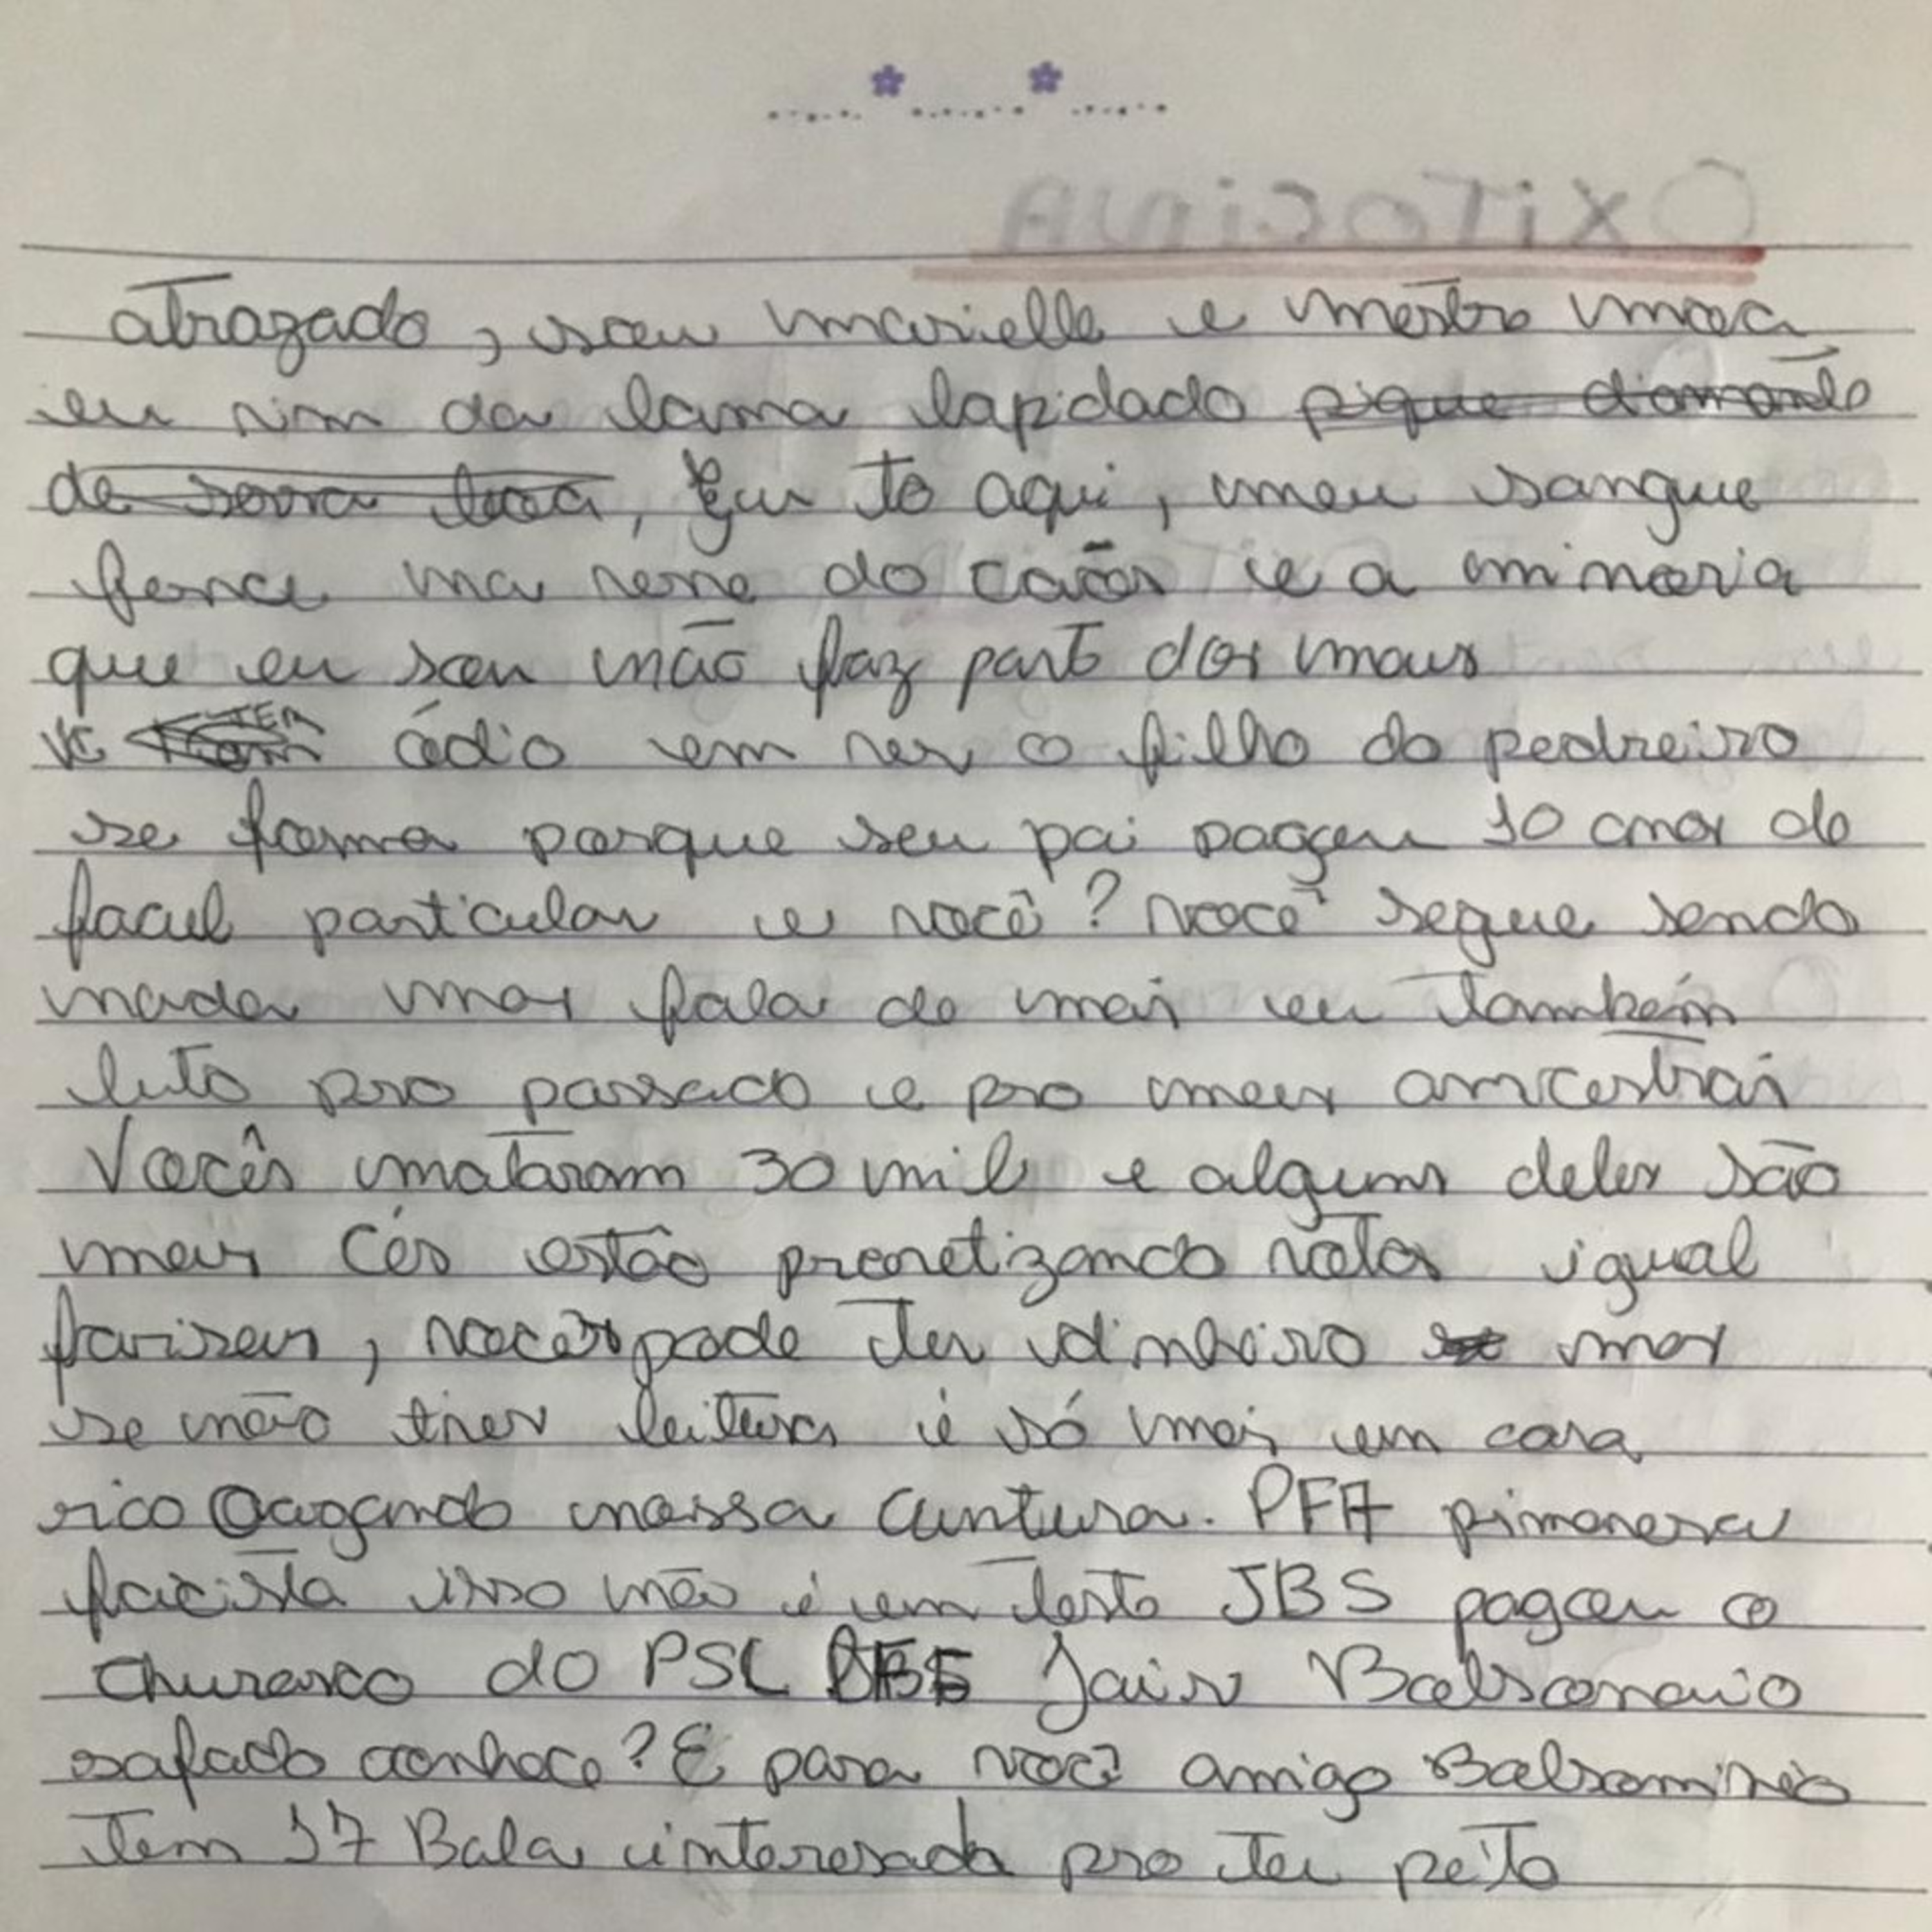 OXITOCINA
atrazado, sou marielle e mestre moa,
eu vim da lama lapidado pique diamante
de serra leoa, Eu to aqui, meu sangue
ferve na vene do caos e a minoria
que eu sou não faz part dos maus
vc TEM ódio em ver o filho do pedreiro
se forma porque seu pai pagou 10 anos de
facul particular e você? você segue sendo
nada mas fala de mais eu também
luto pro passado e pro meus ancestrais
Vocês mataram 30 mil e alguns deles são
meus Cês estão pronetizando votos igual
fariseus, vocês pode ter dinheiro mas
se não tiver leitura é só mais um cara
rico cagando nossa cuntura. PFA
facista isso não é um teste JBS pagou o
churasco do PSL Jair Bolsonaro
safado conhece? E para você amigo Bolsominio
Tem 17 Bala interesada pro teu peito